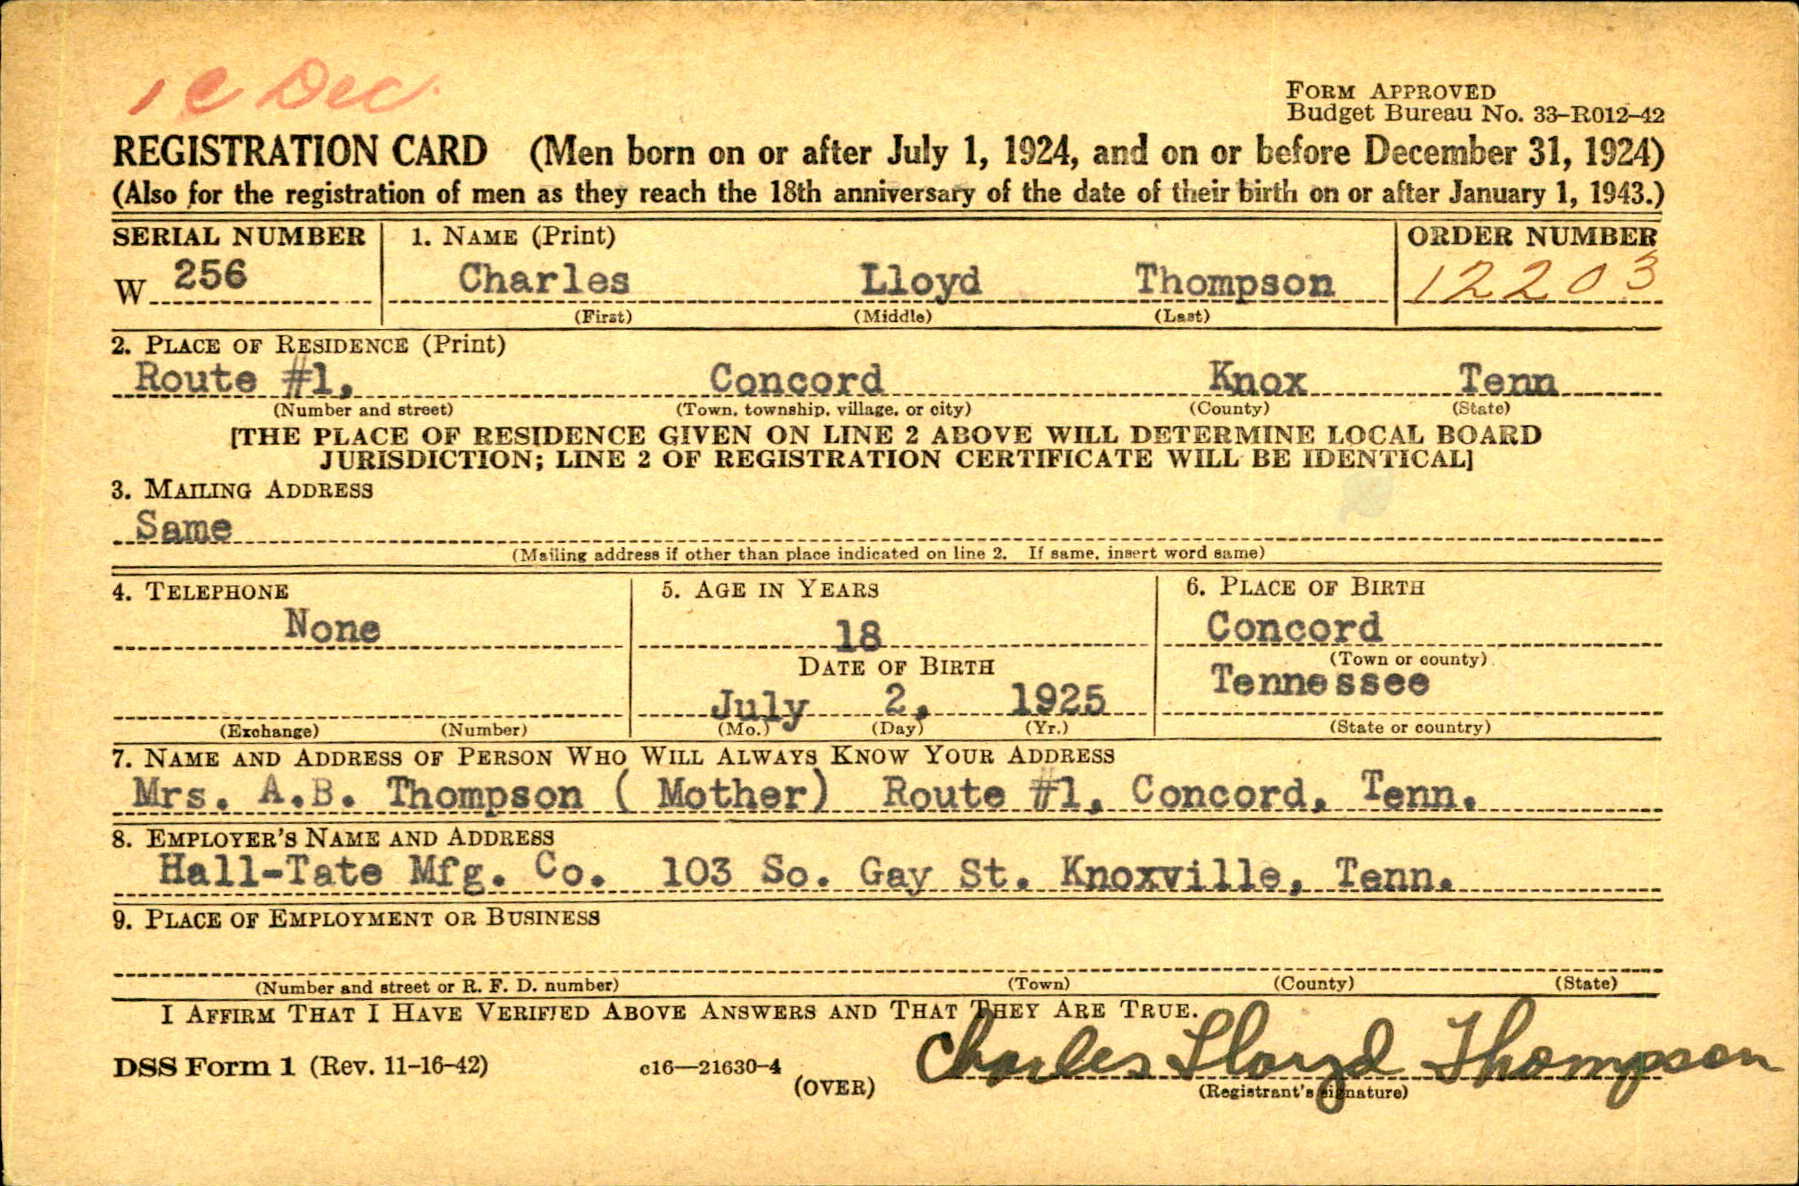 1 C Dec.
FORM APPROVED
Budget Bureau No. 33-R012-42
REGISTRATION CARD (Men born on or after July 1, 1924, and on or before December 31, 1924)
(Also for the registration of men as they reach the 18th anniversary of the date of their birth on or after January 1, 1943.)
SERIAL NUMBER 1. NAME (Print) ORDER NUMBER
W 256 Charles Lloyd Thompson 12203
(First) (Middle) (Last)
2. PLACE OF RESIDENCE (Print)
Route #1, Concord Knox Tenn
(Number and street) (Town, township, village, or city) (County) (State)
[THE PLACE OF RESIDENCE GIVEN ON LINE 2 ABOVE WILL DETERMINE LOCAL BOARD
JURISDICTION; LINE 2 OF REGISTRATION CERTIFICATE WILL BE IDENTICAL]
3. MAILING ADDRESS
Same
(Mailing address if other than place indicated on line 2. If same, insert word same)
4. TELEPHONE 5. AGE IN YEARS 6. PLACE OF BIRTH
None 18 Concord
DATE OF BIRTH (Town or county)
July 2, 1925 Tennessee
(Exchange) (Number) (Mo.) (Day) (Yr.) (State or country)
7. NAME AND ADDRESS OF PERSON WHO WILL ALWAYS KNOW YOUR ADDRESS
Mrs. A.B. Thompson ( Mother) Route #1, Concord, Tenn.
8. EMPLOYER'S NAME AND ADDRESS
Hall-Tate Mfg. Co. 103 So. Gay St. Knoxville, Tenn.
9. PLACE OF EMPLOYMENT OR BUSINESS
(Number and street or R. F. D. number) (Town) (County) (State)
I AFFIRM THAT I HAVE VERIFIED ABOVE ANSWERS AND THAT THEY ARE TRUE.
DSS Form 1 (Rev. 11-16-42) c16—21630-4 (OVER) Charles Lloyd Thompson
(Registrant's signature)